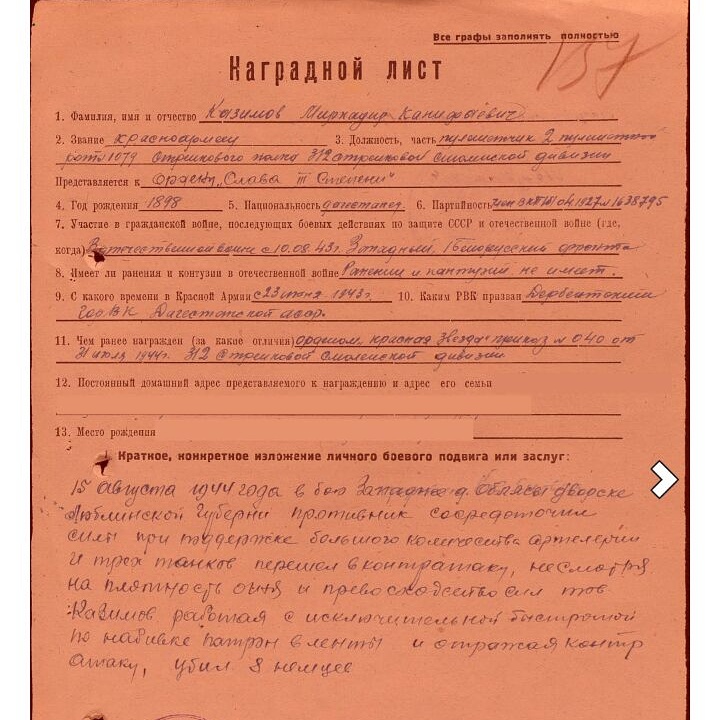 Все графы заполнять полностью
157
Наградной лист
1. Фамилия, имя и отчество Казимов Миркадир Ханифаевич
2. Звание красноармеец 3. Должность, часть пулеметчик 2 пулеметной
роты 1079 стрелкового полка 312 стрелковой Смоленской дивизии
Представляется к ордену „Слава III степени"
4. Год рождения 1898 5. Национальность дагестанец 6. Партийность член ВКП(б) 1927 № 1638795
7. Участие в гражданской войне, последующих боевых действиях по защите СССР и отечественной войне (где,
когда) В отечественной войне с 10.08.43г. Западный, 1 Белорусский фронта
8. Имеет ли ранения и контузии в отечественной войне Ранении и кантузии не имеет.
9. С какого времени в Красной Армии с 23 июня 1943г. 10. Каким РВК призван Дербентским
Гор.ВК Дагестанской асср.
11. Чем ранее награжден (за какие отличия) орденом „красная звезда" приказ № 040 от
31 июля 1944г. 312 стрелковой Смоленской дивизии
12. Постоянный домашний адрес представляемого к награждению и адрес его семьи
13. Место рождения
Краткое, конкретное изложение личного боевого подвига или заслуг:
15 августа 1944 года в бою Западнее д. Облясы дворске
Люблинской Губерни противник сосредоточил
силы при поддержке большого количества артелерии
и трех танков перешел в контратаку, несмотря
на плотность огня и превосходство сил тов
Казимов работая с исключительной быстротой
по набивке патрон в ленты и отражая контр
атаку, убил 8 немцев